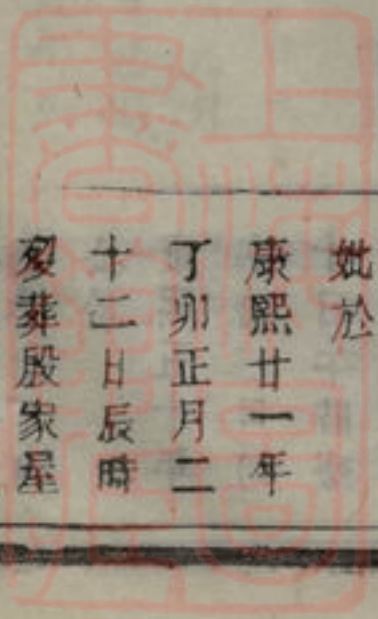 妣於
康熙廿一年
丁卯正月二
十二日辰時
葬殷家屋